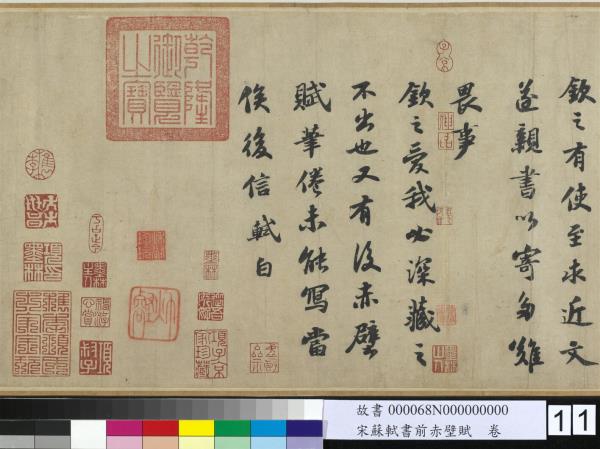 欽之有使至求近文
遂親書以寄多難
畏事
欽之愛我必深藏之
不出也又有後赤壁
賦筆倦未能寫當
俟後信軾白
乾隆
御覽
之寶
項子京
家珍藏
故書 000068N000000000
宋蘇軾書前赤壁賦 卷
11